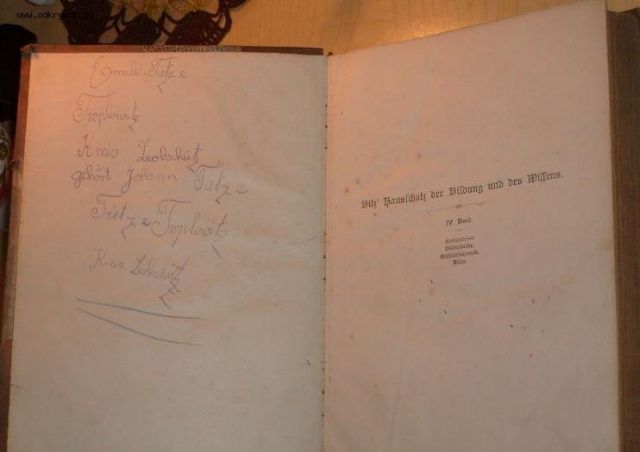 www.odkry
Emilie Tietze
Troplowitz
Kreis Leobschütz
gehört Johann Tietze
Tietze Troplowitz
Kreis Leobschütz
Bilz' Hausschatz der Bildung und des Wissens.
IV. Band.
Atlas.